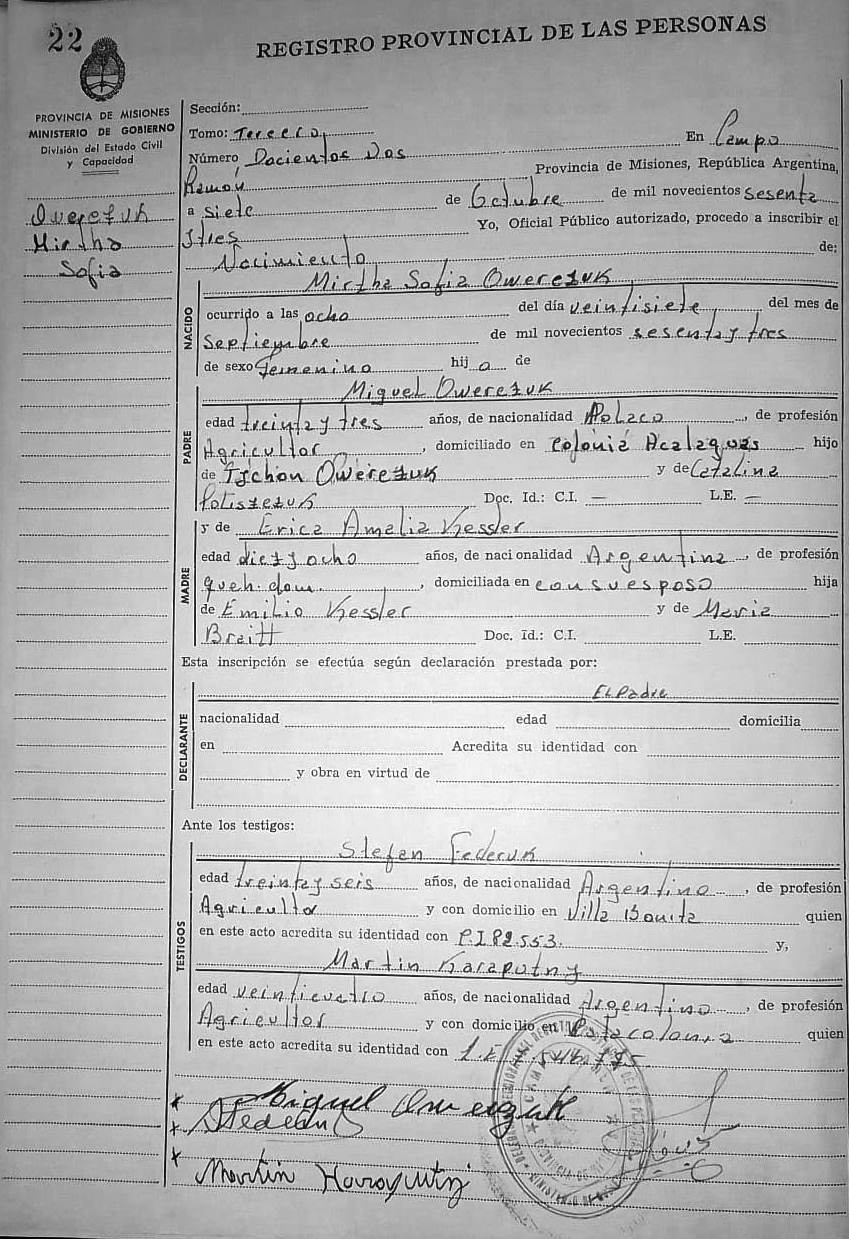 22
REGISTRO PROVINCIAL DE LAS PERSONAS
PROVINCIA DE MISIONES
MINISTERIO DE GOBIERNO
División del Estado Civil
y Capacidad
Owerezuk
Mirtha
Sofia
Sección:
Tomo: Tercero
Número Docientos Dos En Campo
Ramón Provincia de Misiones, República Argentina,
a siete de Octubre de mil novecientos sesenta
y tres Yo, Oficial Público autorizado, procedo a inscribir el
Nacimiento de:
Mirtha Sofia Owerezuk
NACIDO
ocurrido a las ocho del día veintisiete del mes de
Septiembre de mil novecientos sesenta y tres
de sexo femenino hij a de
Miguel Owerezuk
PADRE
edad treinta y tres años, de nacionalidad Polaco, de profesión
Agricultor, domiciliado en Colonia hijo
de Owerezuk y de Catalina
Doc. Id.: C.I. — L.E. —
y de Erica Amalia Kessler
MADRE
edad diez y ocho años, de nacionalidad Argentina, de profesión
queh. dom., domiciliada en con su esposo hija
de Emilio Kessler y de Maria
Braitt Doc. Id.: C.I. L.E.
Esta inscripción se efectúa según declaración prestada por:
El Padre
DECLARANTE
nacionalidad edad domicilia
en Acredita su identidad con
y obra en virtud de
Ante los testigos:
Stefan Federuk
TESTIGOS
edad treinta y seis años, de nacionalidad Argentino, de profesión
Agricultor y con domicilio en Villa Bonita quien
en este acto acredita su identidad con P.I 82.553. y,
Martin Karaputny
edad veinticuatro años, de nacionalidad Argentino, de profesión
Agricultor y con domicilio en quien
en este acto acredita su identidad con L.E.
Miguel Owerezuk
Martin